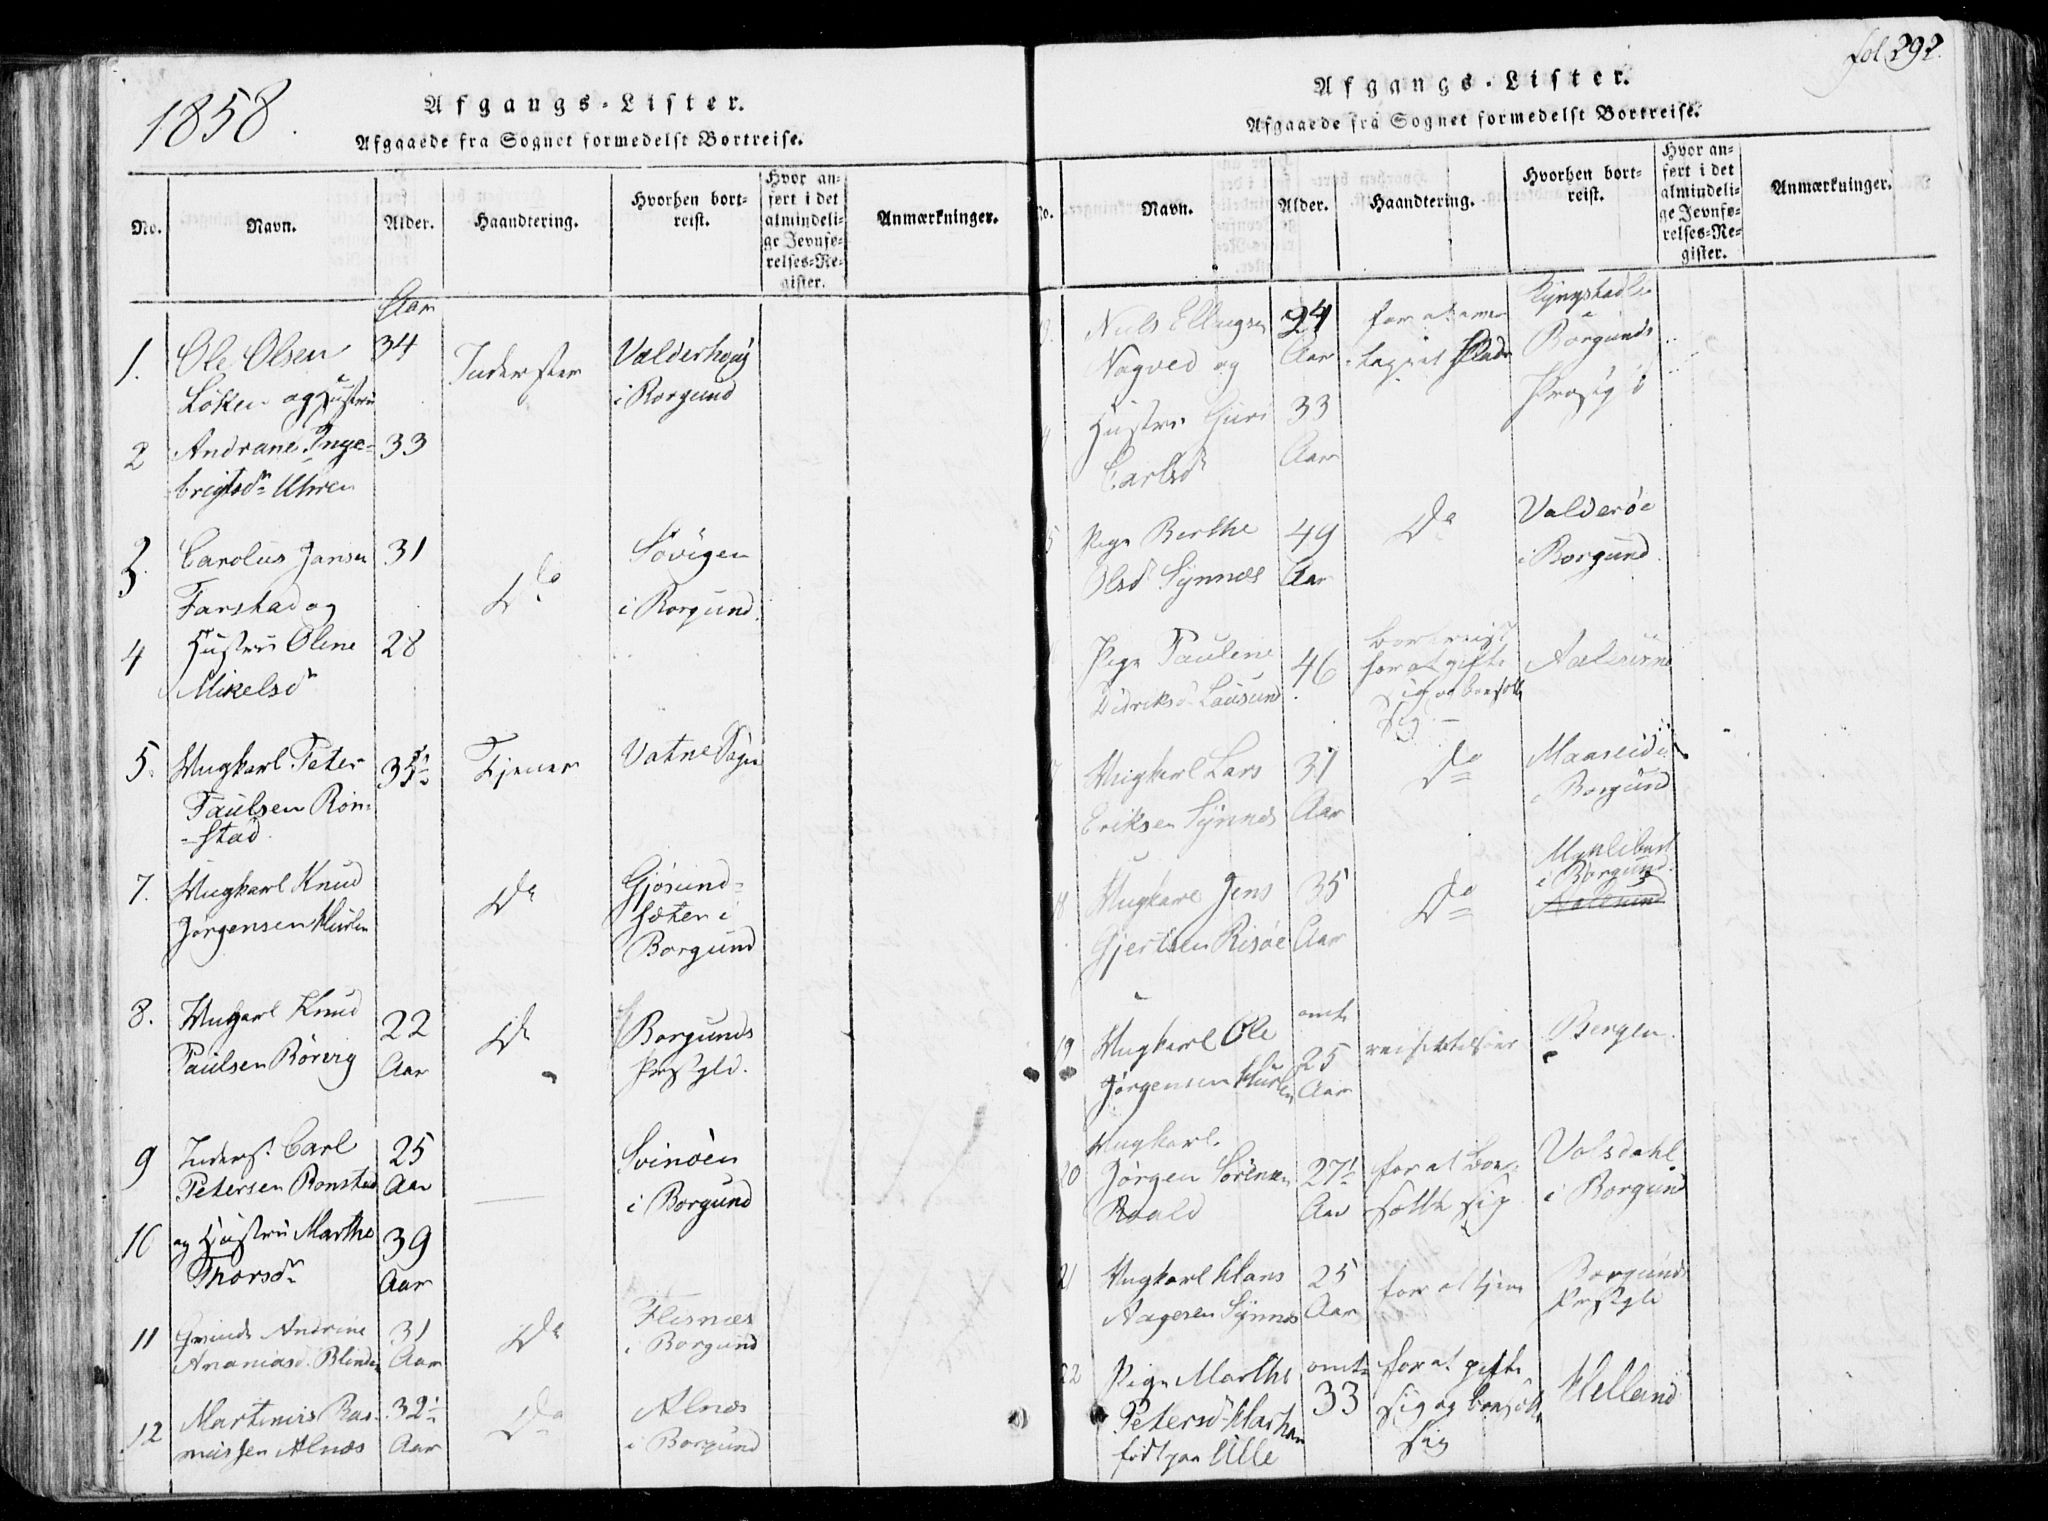 1858.
Afgangs-Lister.
Afgaaede fra Sognet formedelst Bortreise.
No.
Navn.
Alder.
Haandtering.
Hvorhen bort-
reist.
Hvor an-
ført i det
almindeli-
ge Jevnfø-
relses-Re-
gister.
Anmærkninger.
Aar
1.
Ole Olsen
Løken og Hustru
34
Inderster
Valderhoug
i Borgund
2
Andrane Inge-
brigtsdr Uhren
33
3.
Carolus Jansen
Farstad og
31
Do
Søvigen
i Borgund
4
Hustru Oline
Mikelsdr
28
5.
Ungkarl Peter
Paulsen Rön-
-stad
35½
Tjener
Vatne Sogn
7.
Ungkarl Knud
Jørgensen
Do
Gjøsund-
sæter i
Borgund
8.
Ungkarl Knud
Paulsen Rörvig
22
Aar
Do
Borgunds
Prstgld.
9
Inderst Carl
Petersen Ronstad
25
Aar
Svinöen
i Borgund
10
og Hustru Marthe
Thorsdr
39
Aar
11
Andrine
Ananiasd. Blindem
31
Aar
Do
Flisnæs
i Borgund
12
Martinus Ras-
mussen Alnæs
32½
Aar
Do
Alnæs
i Borgund
fol 292.
Afgangs-Lister.
Afgaaede fra Sognet formedelst Bortreise.
No.
Navn.
Alder.
Haandtering.
Hvorhen bort-
reist.
Hvor an-
ført i det
almindeli-
ge Jevnfø-
relses-Re-
gister.
Anmærkninger.
Nils Ellingsen
Nogved og
24
Aar
for at
Borgunds
Hustru Guri
Carlsdr
33
Aar
5
Pige Berthe
Olsdr Synnes
49
Aar
Do
Valderöe
i Borgund.
Pige Pauline
Didriksd. Lausund
46
bortreist
for at gifte
sig og bosætte
sig
Aalesund
7
Ungkarl Lars
Eriksen Synnes
31
Aar
Do
Maaseide
i Borgund
18
Ungkarl Jens
Gjertsen Risöe
35
Aar
Do
Myklebust
i Borgund.
Aalesund
19
Ungkarl Ole
Jørgensen
omtr
25
Aar
Bergen.
20
Ungkarl.
Jørgen Sörensen
Roald
27½
Aar
for at bo-
sætte sig
Volsdahl
i Borgund
21
Ungkarl Hans
Aagesen Synnes
25
Aar
for at tjene
Borgunds
Prstgld
22
Pige Marthe
Petersdr
född paa Ulle
omtr
33
for at gifte
sig og bosætte
sig
Helland